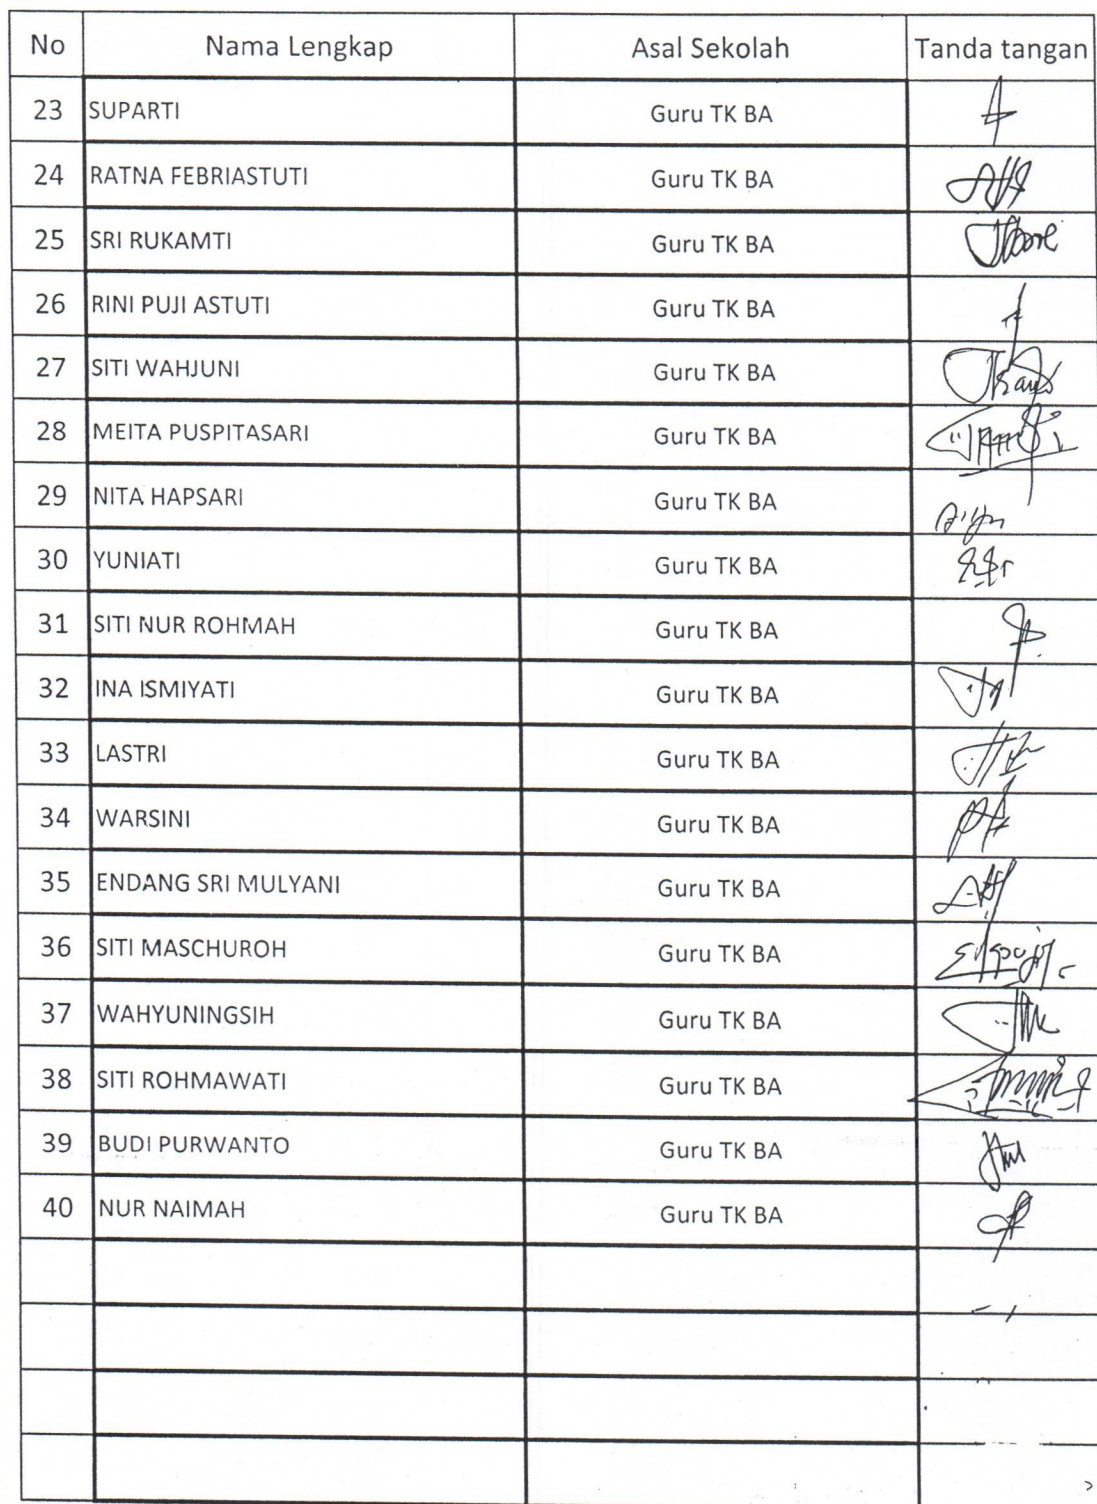 No Nama Lengkap Asal Sekolah Tanda tangan
23 SUPARTI Guru TK BA
24 RATNA FEBRIASTUTI Guru TK BA
25 SRI RUKAMTI Guru TK BA
26 RINI PUJI ASTUTI Guru TK BA
27 SITI WAHJUNI Guru TK BA
28 MEITA PUSPITASARI Guru TK BA
29 NITA HAPSARI Guru TK BA
30 YUNIATI Guru TK BA
31 SITI NUR ROHMAH Guru TK BA
32 INA ISMIYATI Guru TK BA
33 LASTRI Guru TK BA
34 WARSINI Guru TK BA
35 ENDANG SRI MULYANI Guru TK BA
36 SITI MASCHUROH Guru TK BA
37 WAHYUNINGSIH Guru TK BA
38 SITI ROHMAWATI Guru TK BA
39 BUDI PURWANTO Guru TK BA
40 NUR NAIMAH Guru TK BA